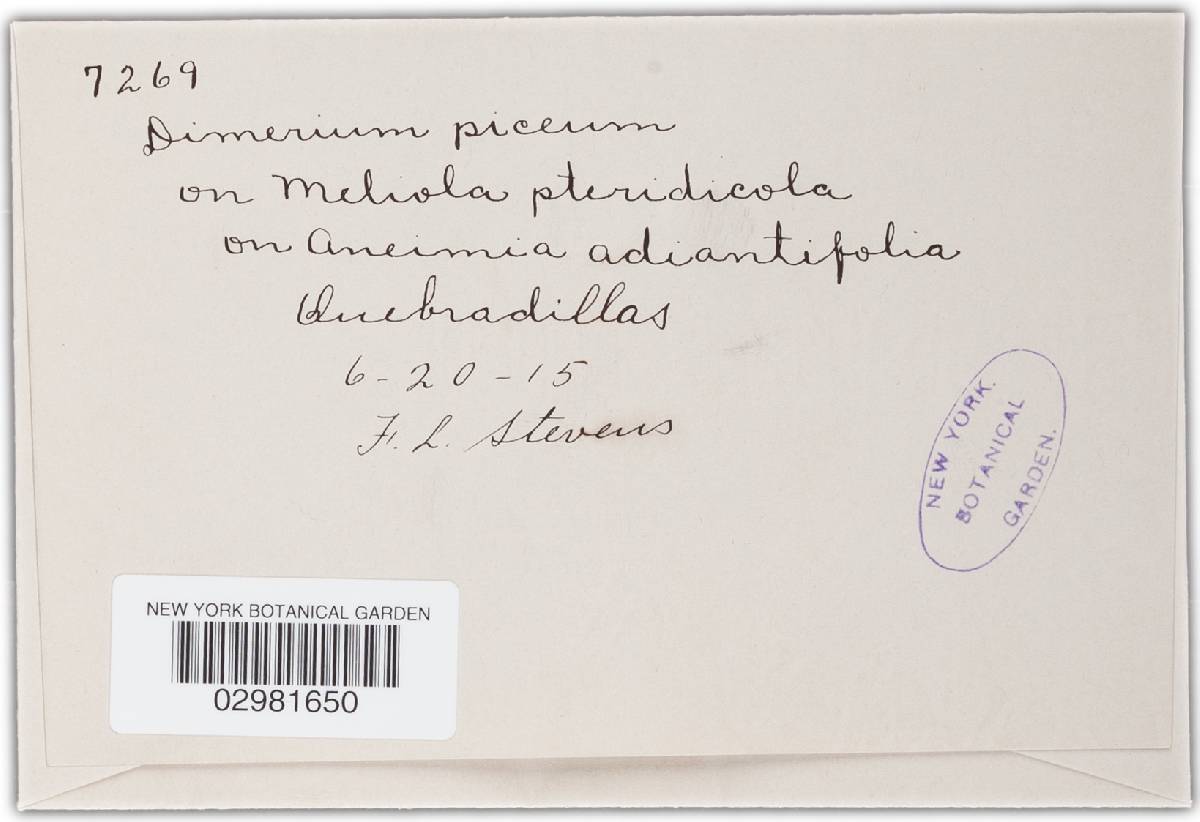 7269
Dimerium piceum
on Meliola pteridicola
on Aneimia adiantifolia
Quebradillas
6-20-15
F. L. Stevens
NEW YORK
BOTANICAL
GARDEN.
NEW YORK BOTANICAL GARDEN
02981650